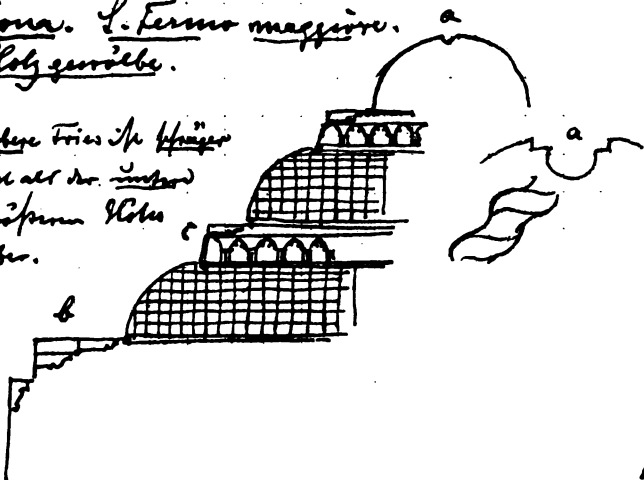 ona. S. Fermo maggiore.
Holzgewölbe.
obere Fries ist schräger
als der untere
größeren Höhe
a
a
c
b